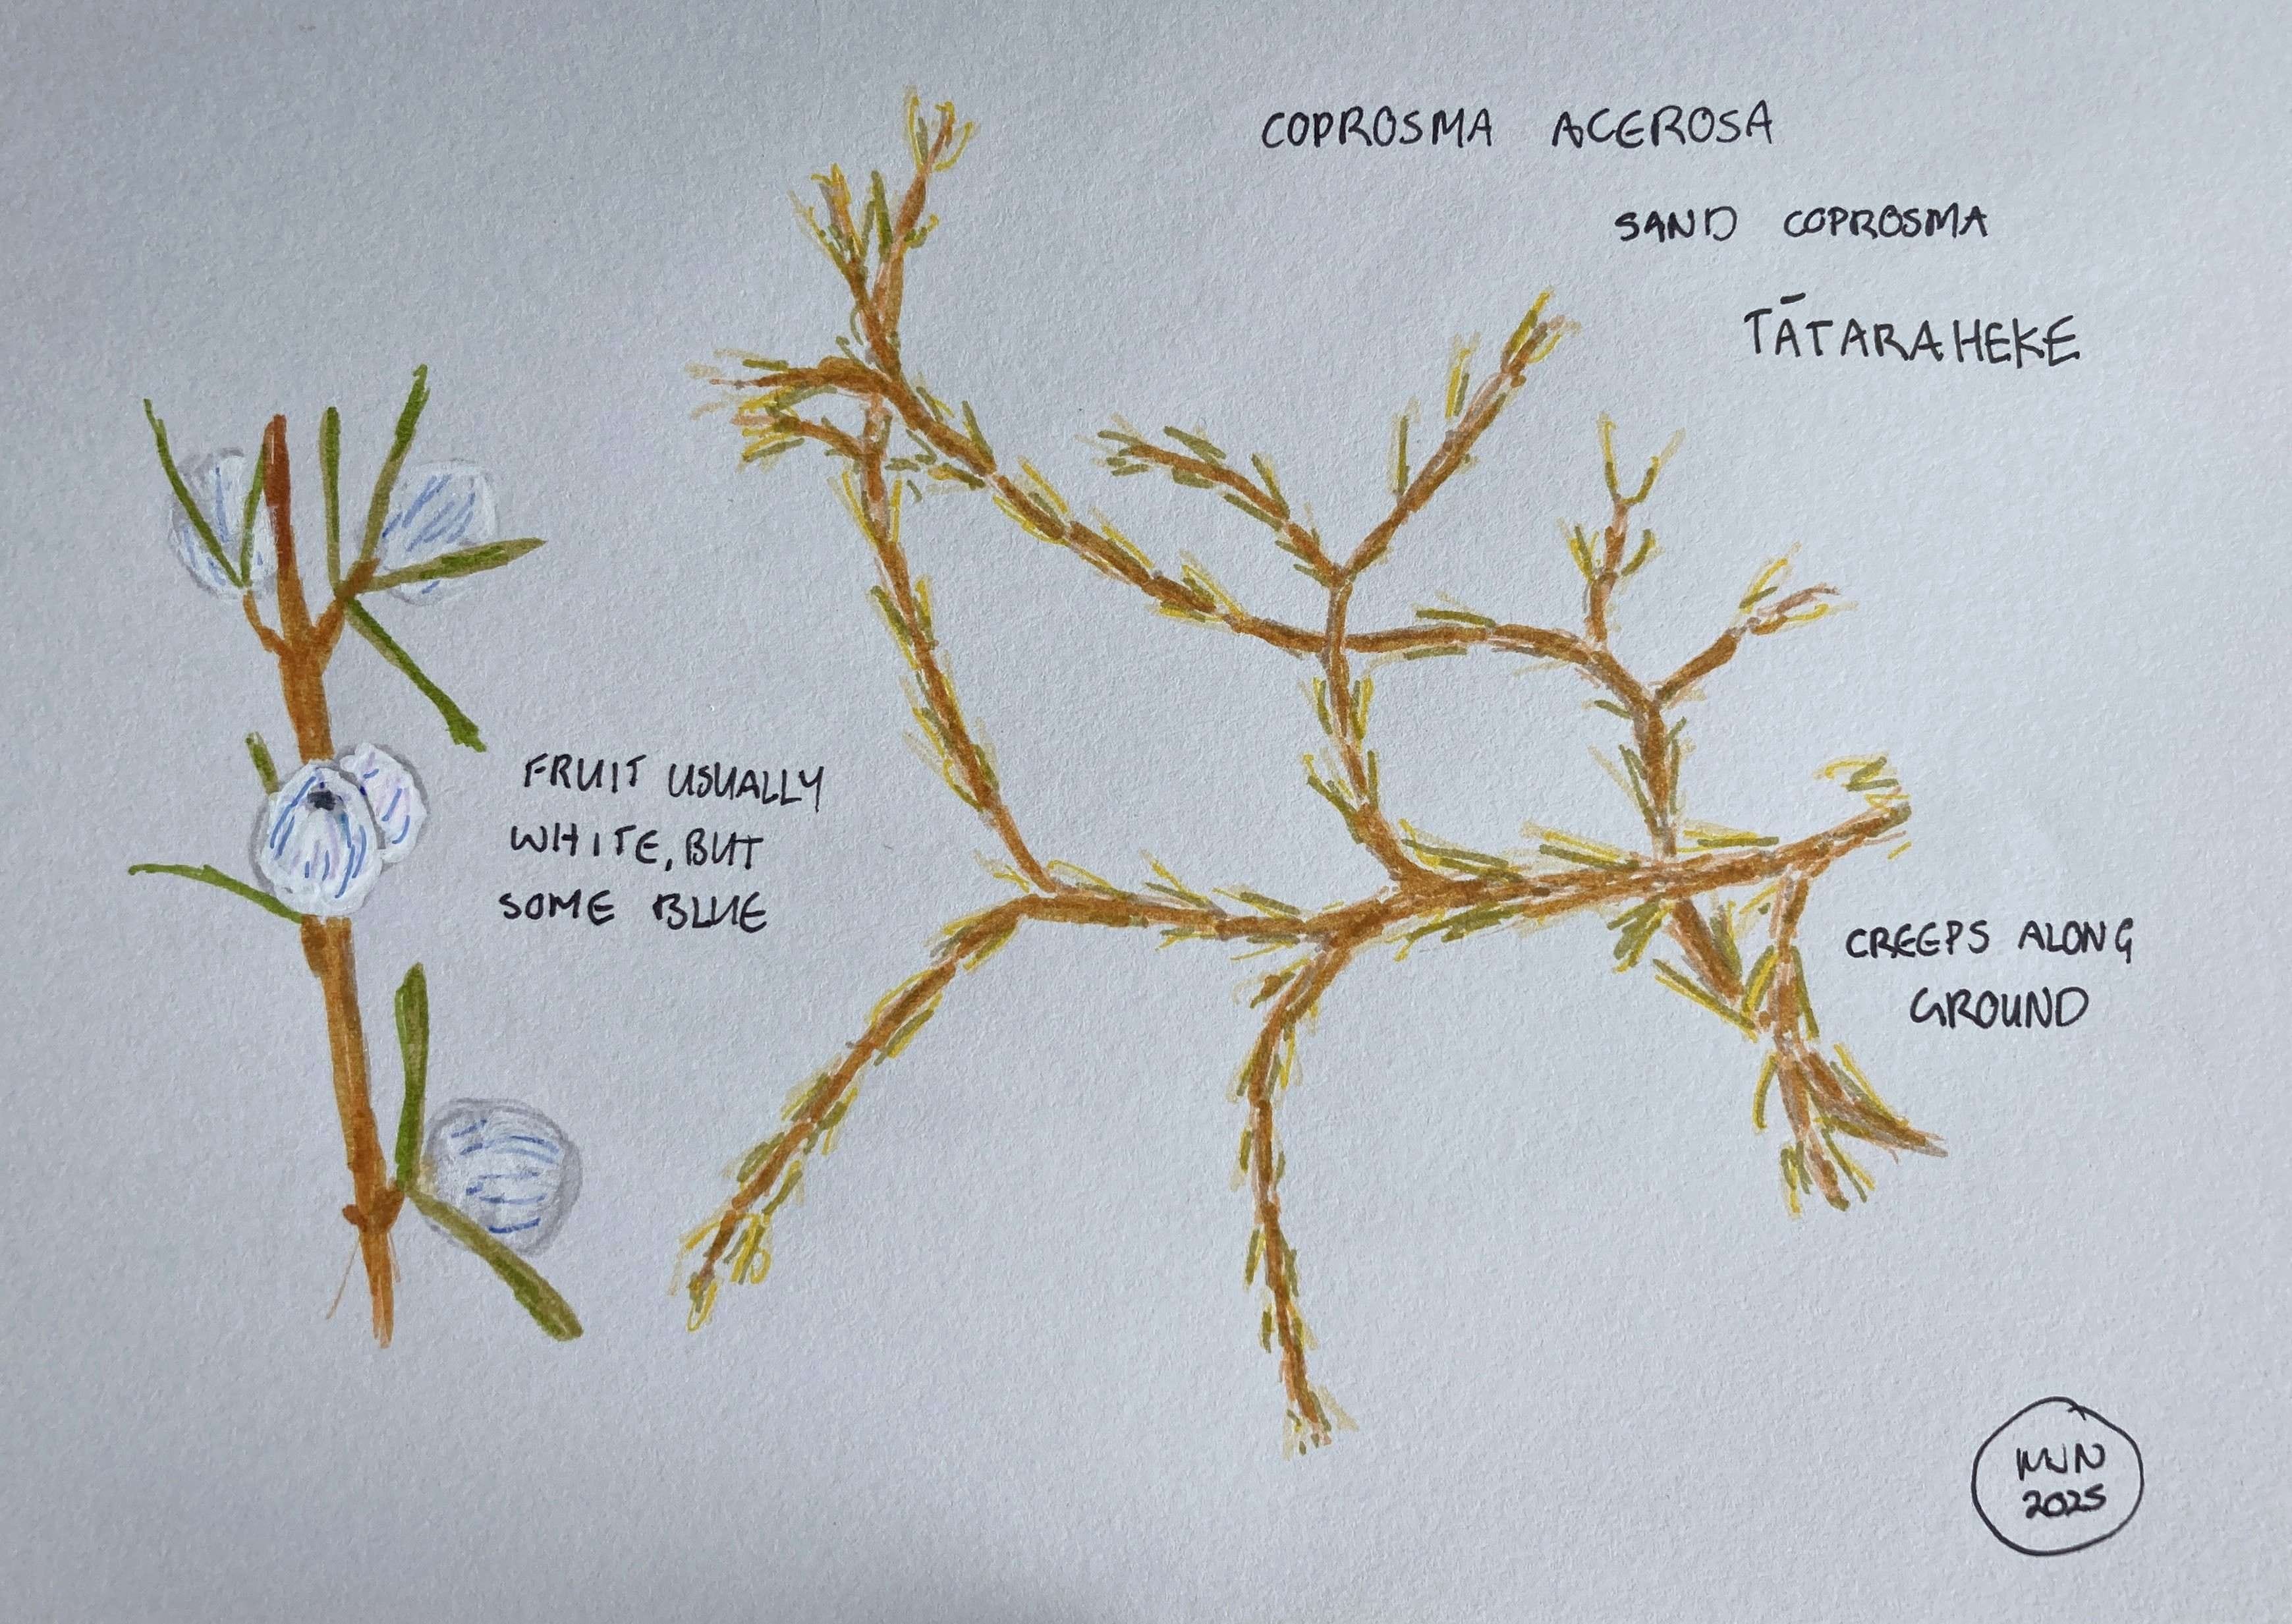 COPROSMA ACEROSA
SAND COPROSMA
TĀTARAHEKE
FRUIT USUALLY
WHITE, BUT
SOME BLUE
CREEPS ALONG
GROUND
MJN
2025